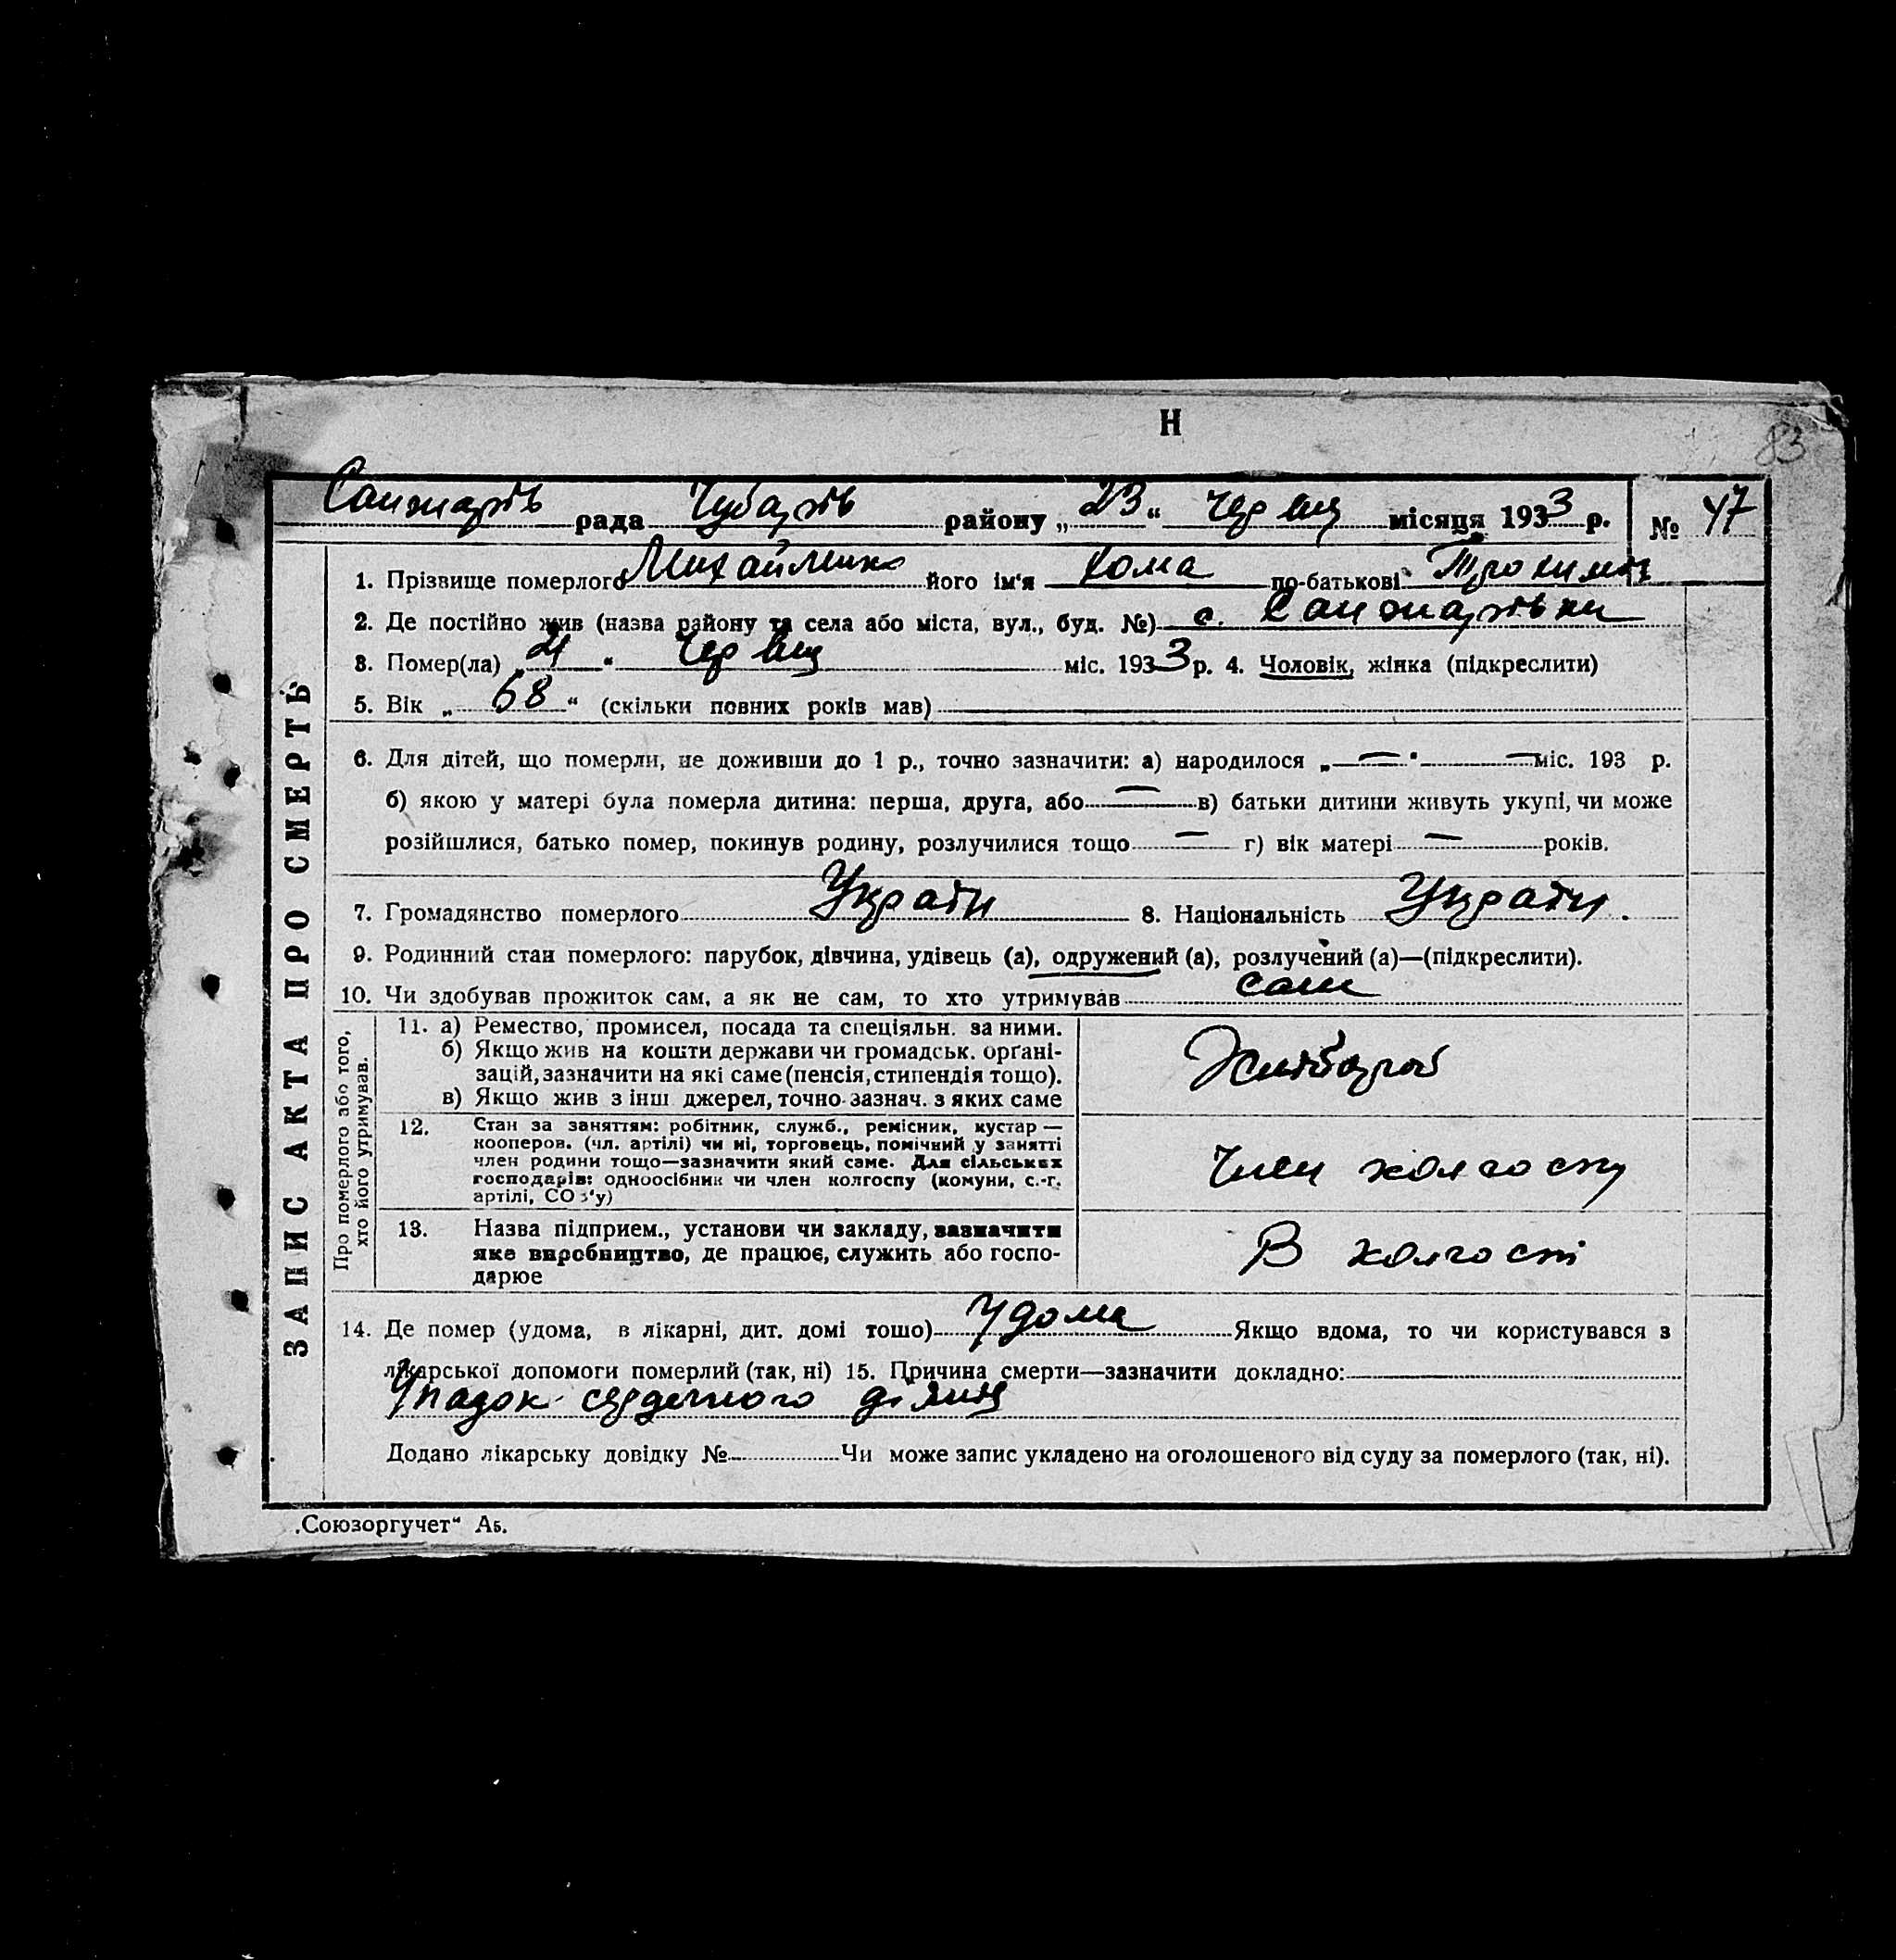 Н
83
Санжарів рада Чубарів району „23“ червця місяця 1933 р. № 47
ЗАПИС АКТА ПРО СМЕРТЬ
1. Прізвище померлого Михайленко його ім'я Хома по-батькові Трохимов
2. Де постійно жив (назва району та села або міста, вул., буд. №) с. Санжарівки
3. Помер(ла) „21“ червця міс. 1933 р. 4. Чоловік, жінка (підкреслити)
5. Вік „68“ (скільки повних років мав)
6. Для дітей, що померли, не доживши до 1 р., точно зазначити: а) народилося „—“ — міс. 193 р.
б) якою у матері була померла дитина: перша, друга, або — в) батьки дитини живуть укупі, чи може
розійшлися, батько помер, покинув родину, розлучилися тощо — г) вік матері — років.
7. Громадянство померлого Україн 8. Національність Україн.
9. Родинний стан померлого: парубок, дівчина, удівець (а), одружений (а), розлучений (а)—(підкреслити).
10. Чи здобував прожиток сам, а як не сам, то хто утримував сам
Про померлого або того,
хто його утримував.
11. а) Ремество, промисел, посада та спеціяльн. за ними.
б) Якщо жив на кошти держави чи громадськ. орґані-
зацій, зазначити на які саме (пенсія, стипендія тощо).
в) Якщо жив з інш джерел, точно зазнач. з яких саме
Хлібороб
12. Стан за заняттям: робітник, служб., ремісник, кустар —
кооперов. (чл. артілі) чи ні, торговець, помічний у занятті
член родини тощо—зазначити який саме. Для сільських
господарів: одноосібник чи член колгоспу (комуни, с.-г.
артілі, СОЗ'у)
Член колгоспу
13. Назва підприєм., установи чи закладу, зазначити
яке виробництво, де працює, служить або госпо-
дарює
В колгоспі
14. Де помер (удома, в лікарні, дит. домі тощо) Удома Якщо вдома, то чи користувався з
лікарської допомоги померлий (так, ні) 15. Причина смерти—зазначити докладно:
Упадок сердечного діяння
Додано лікарську довідку № Чи може запис укладено на оголошеного від суду за померлого (так, ні).
„Союзоргучет“ А5.